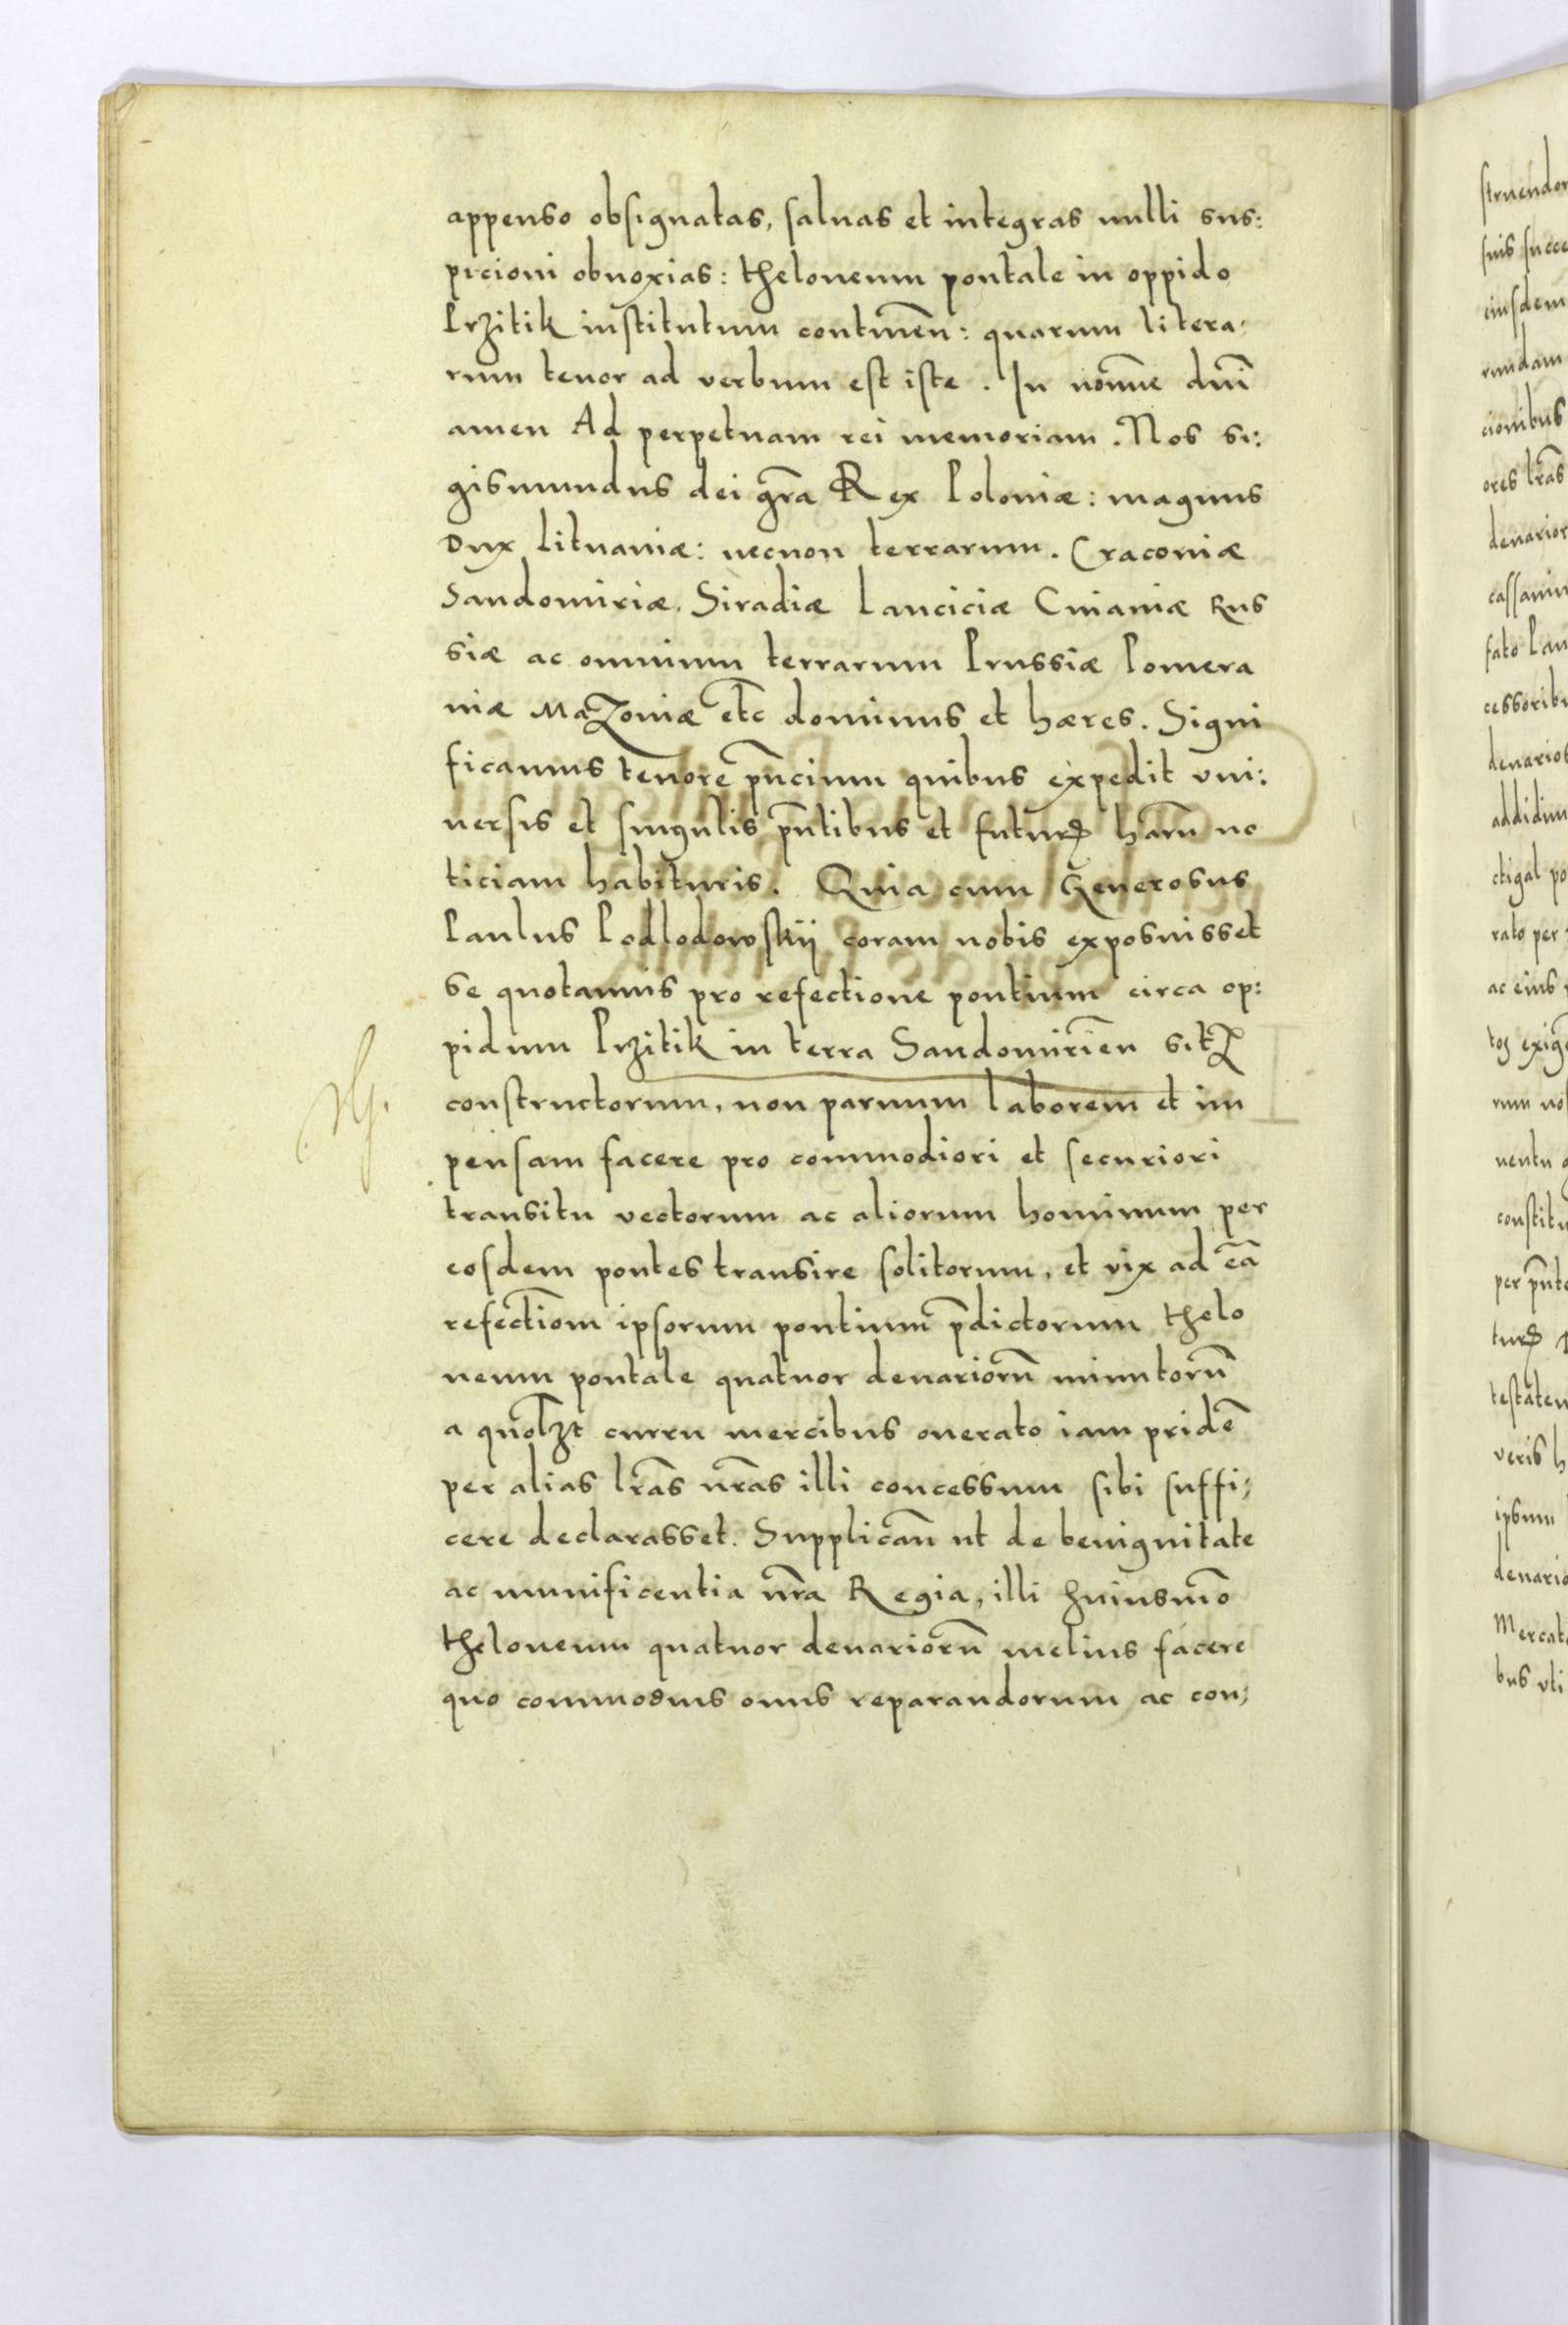 appenso obsignatas, saluas et integras nulli sus:
picioni obnoxias: theloneum pontale in oppido
Przitik institutum contineñ: quarum litera:
rum tenor ad verbum est iste. In noīne dnī
amen Ad perpetuam rei memoriam. Nos si:
gismundus dei gr̄a Rex Poloniæ: magnus
Dux Lituaniæ: necnon terrarum. Cracoviæ
Sandomiriæ. Siradiæ Lanciciæ Cuiaviæ Rus
siæ ac omnium terrarum Prussiæ Pomera
niæ Mazoviæ etc̄ dominus et hæres. Signi
ficamus tenore pn̄cium quibus expedit vni:
uersis et singulis pn̄tibus et futurꝭ harū no
ticiam habituris. Quia cum Generosus
Paulus Podlodowskij coram nobis exposuisset
se quotannis pro refectione pontium circa op:
pidum Przitik in terra Sandomirieñ sitꝝ
constructorum, non paruum laborem et im
pensam facere pro commodiori et securiori
transitu vectorum ac aliorum hominum per
eosdem pontes transire solitorum, et vix ad eā
refectiōm ipsorum pontium p̄dictorum thelo
neum pontale quatuor denariorū minutorū
a quolꝫt curru mercibus onerato iam pridē
per alias lr̄as nr̄as illi concessum sibi suffi;
cere declarasset. Supplicañ ut de benignitate
ac munificentia nr̄a Regia, illi huiusmōo
theloneum quatuor denariorū melius facere
quo commodius onus reparandorum ac con;
struendor
suis succe
eiusdem
rundam
cionibus
ores lr̄as
denarior
cassauim
fato Pau
cessoribu
denarios
addidim
ctigal po
rato per
ac eius
tos exig
rum no
uentu
constitu
per pn̄t
turꝭ
testateu
veris h
ipsum
denario
Mercat
bus vti